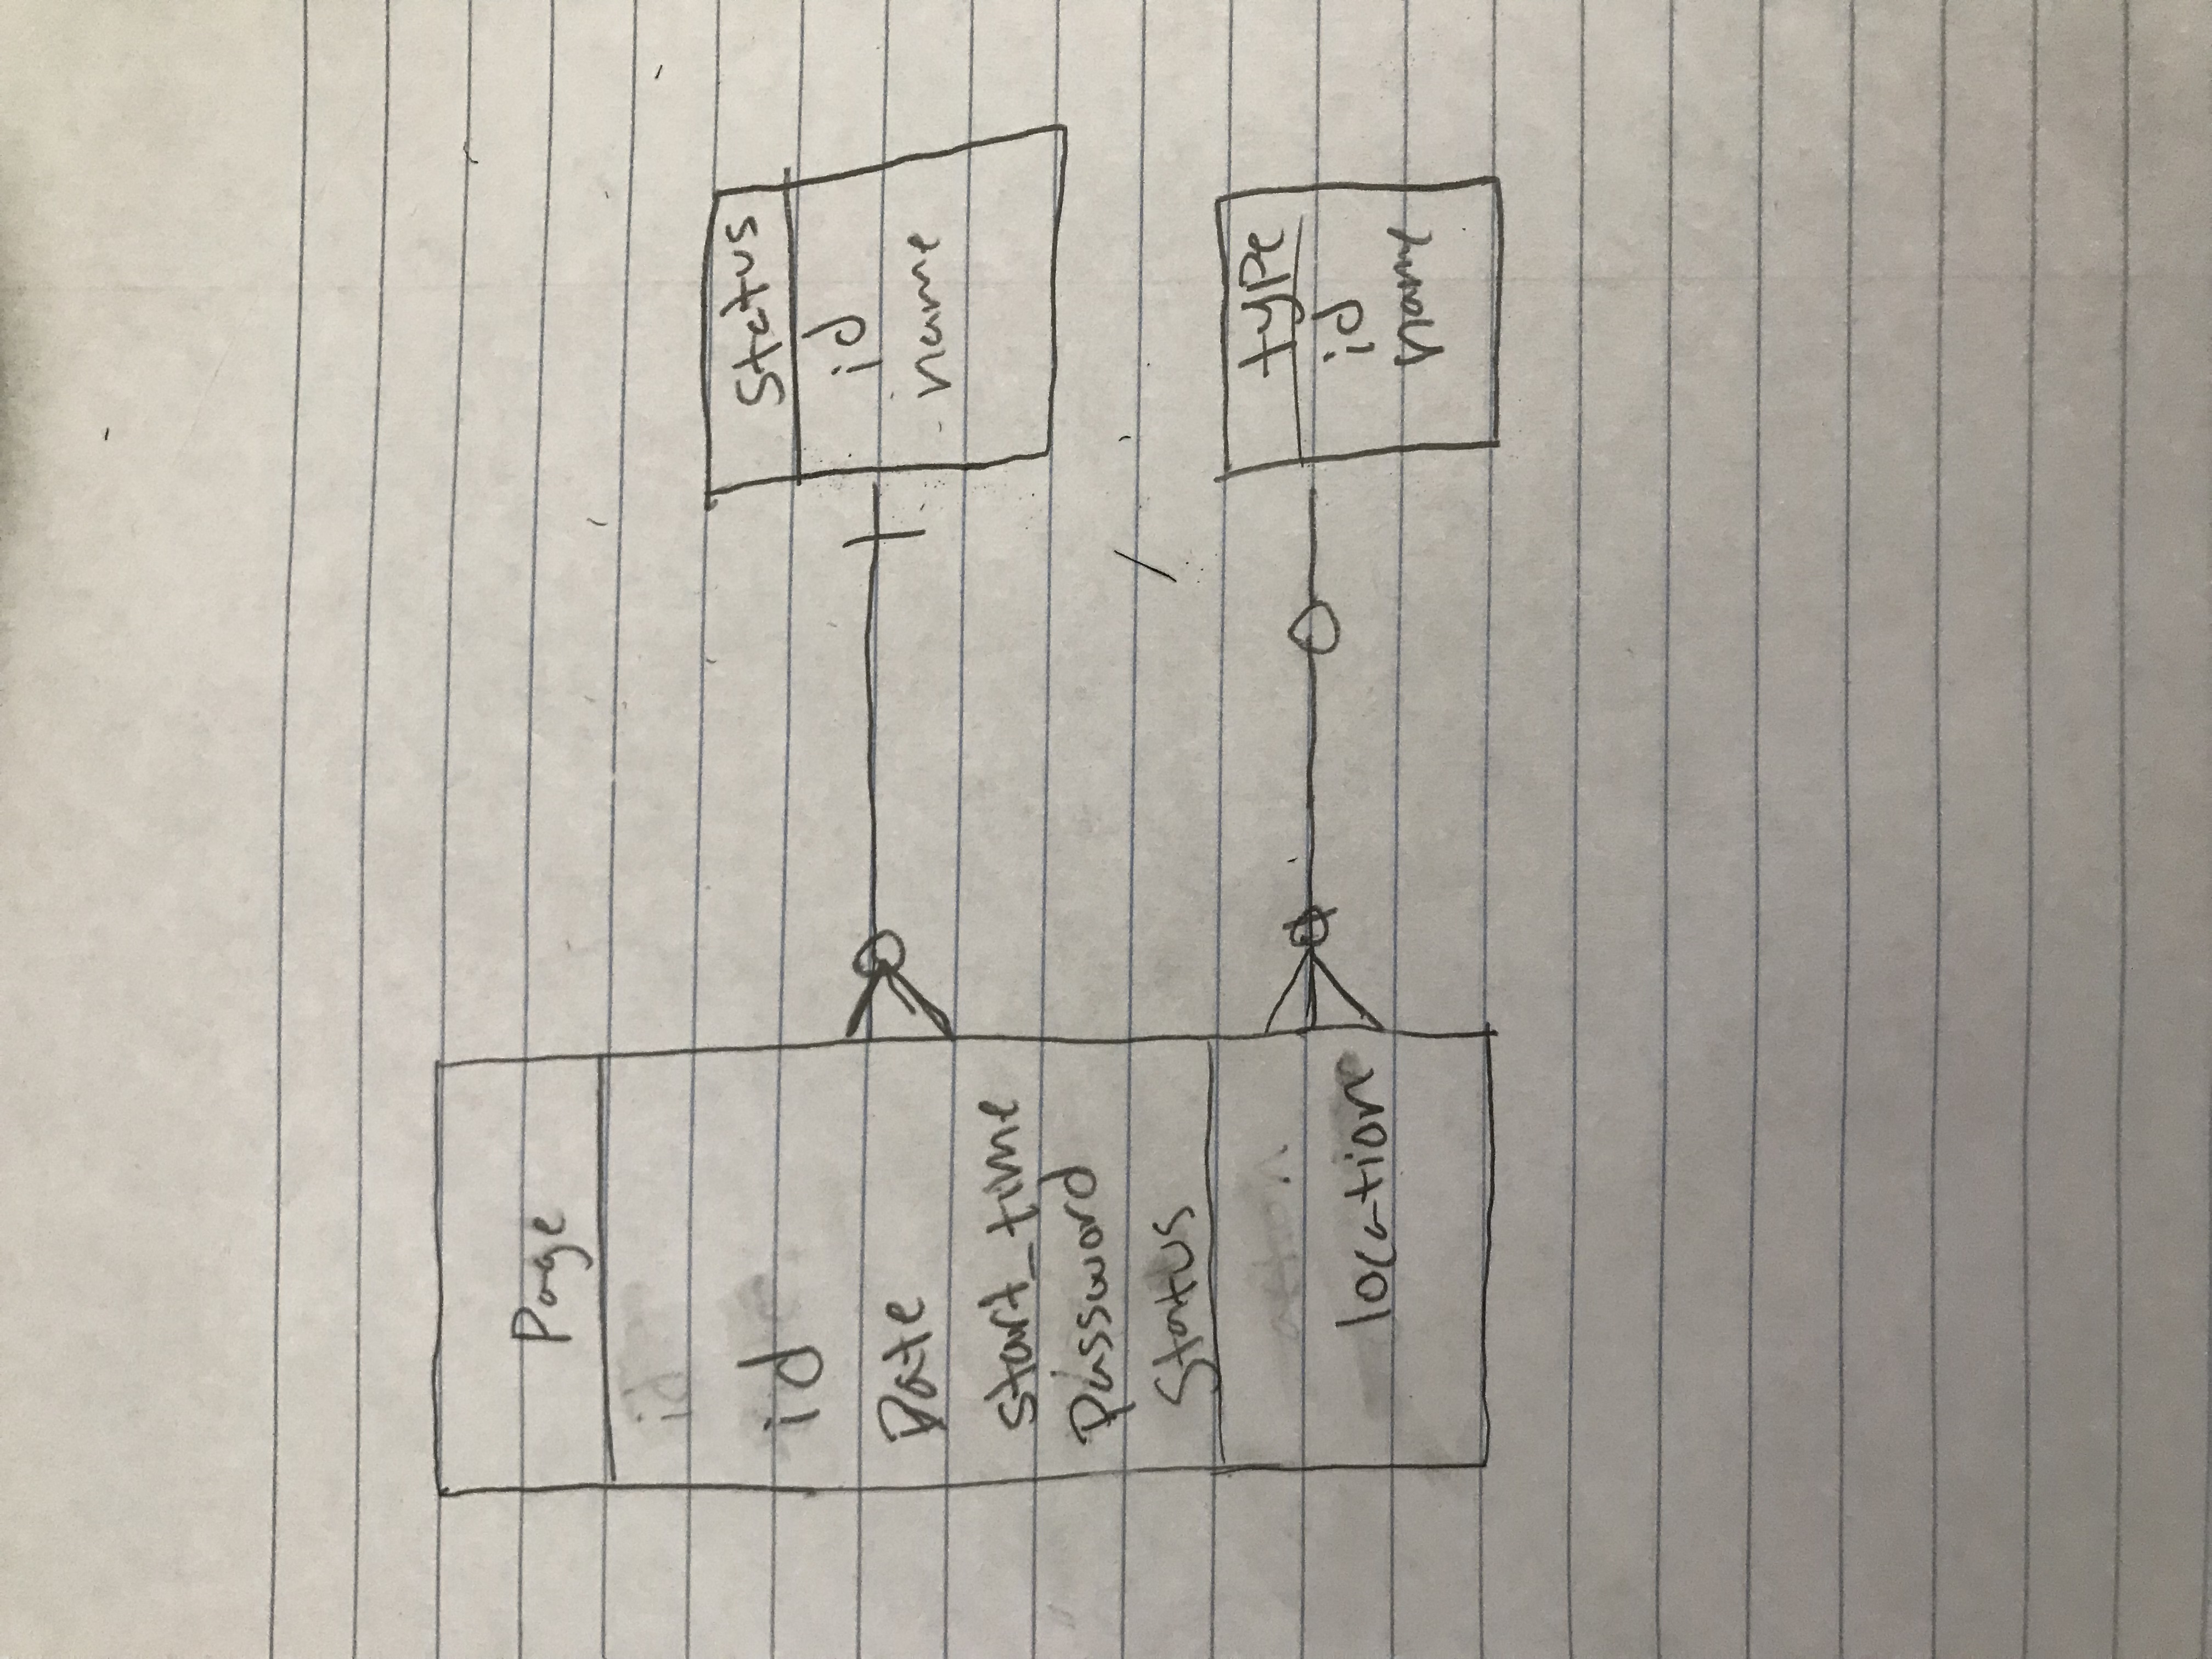 Page
id
id
Date
start_time
Password
Status
location
Status
id
name
type
id
name